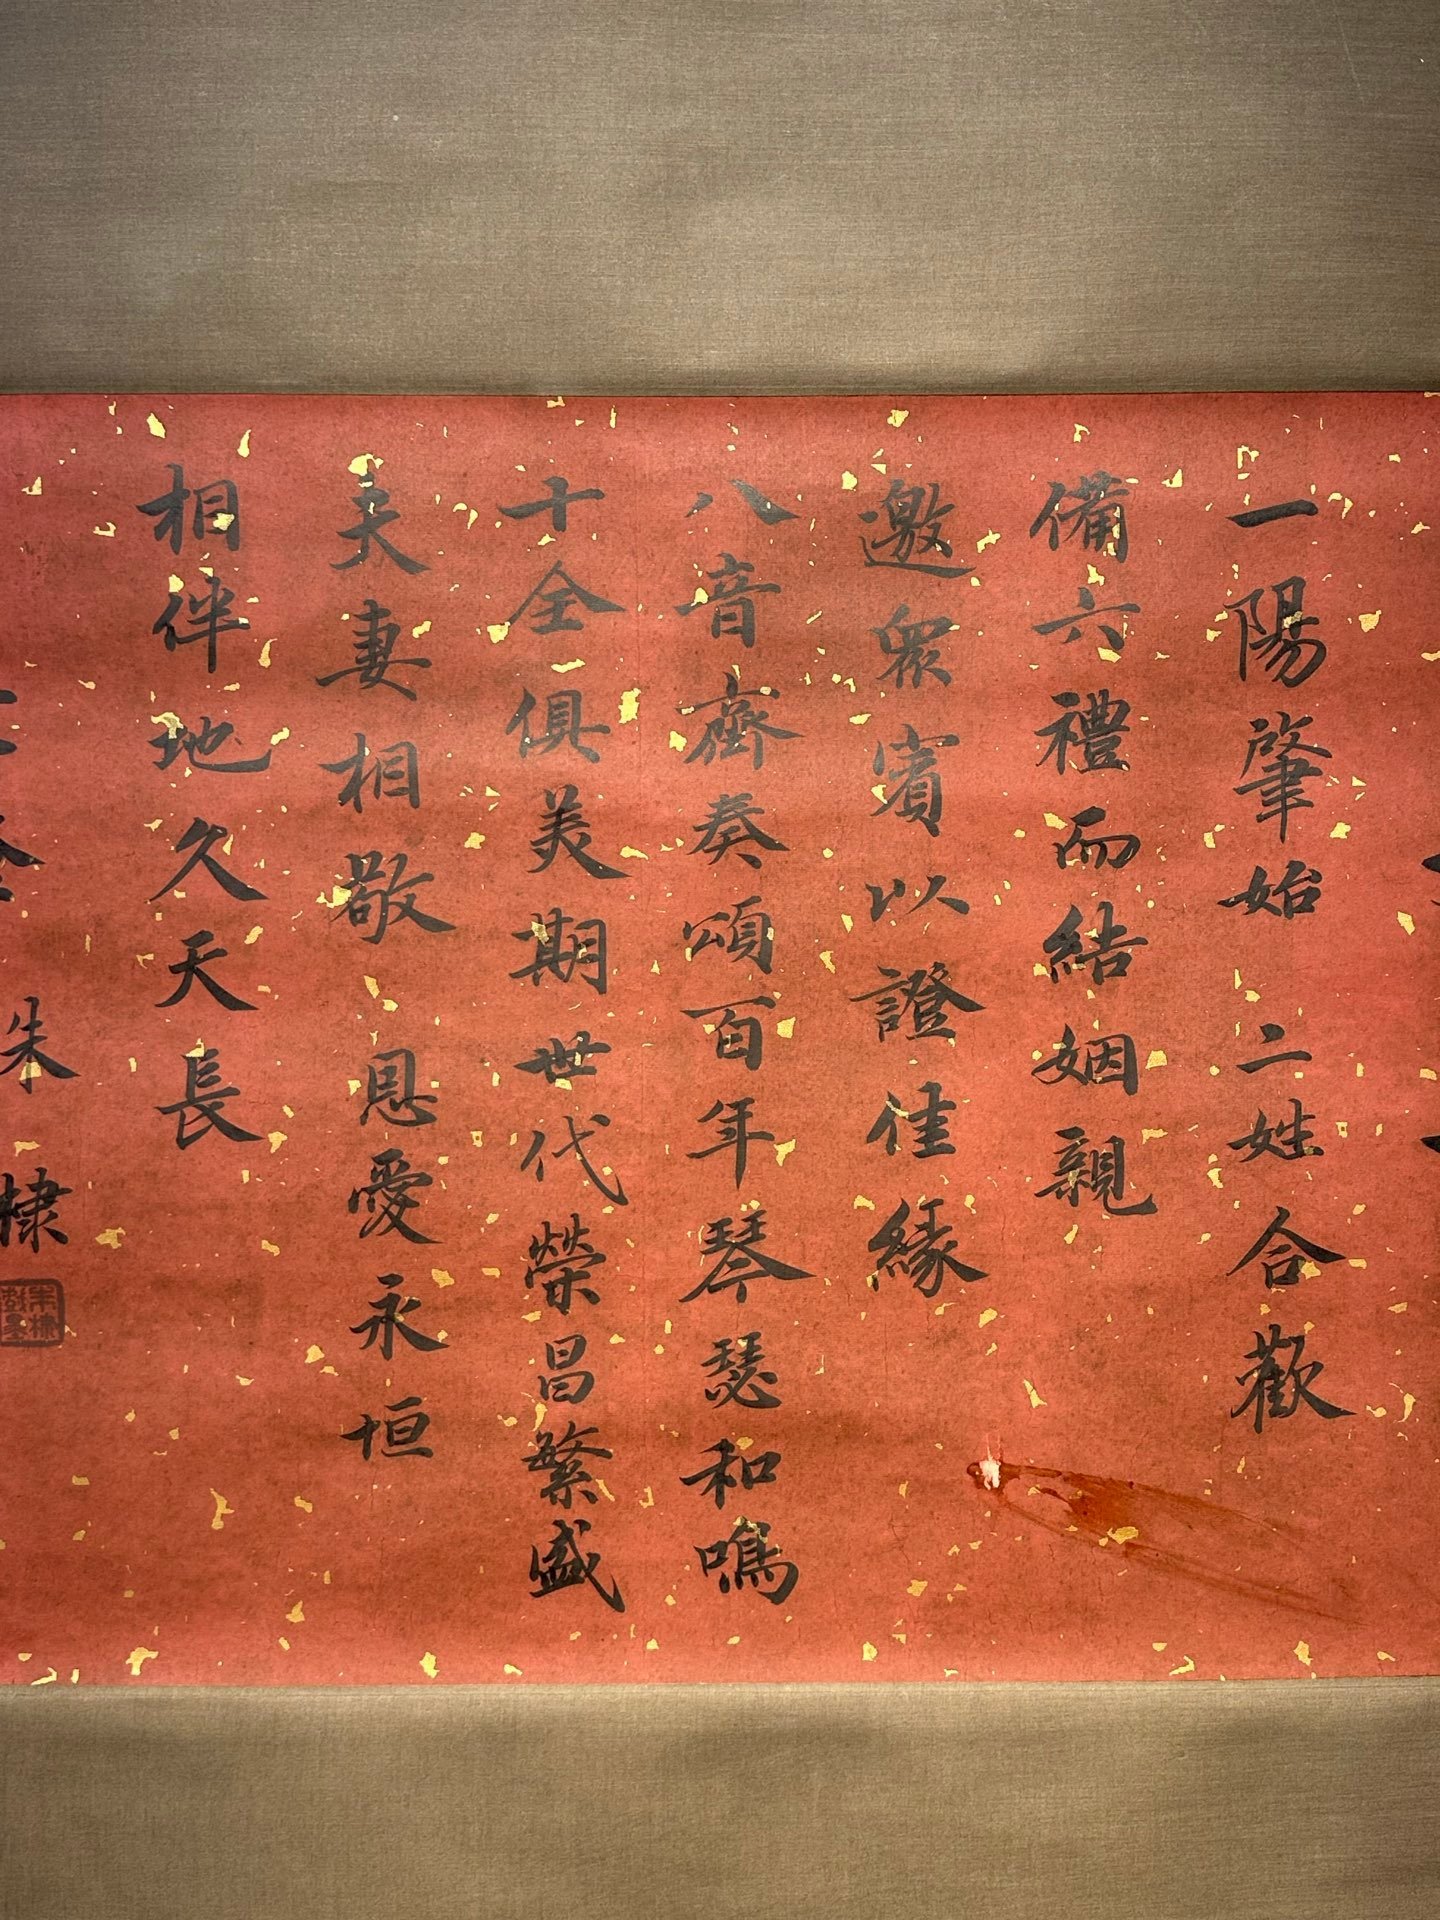 一陽肇始 二姓合歡
備六禮而結姻親
邀眾賓以證佳緣
八音齊奏頌百年琴瑟和鳴
十全俱美期世代榮昌繁盛
夫妻相敬 恩愛永恒
相伴地久天長
朱棣